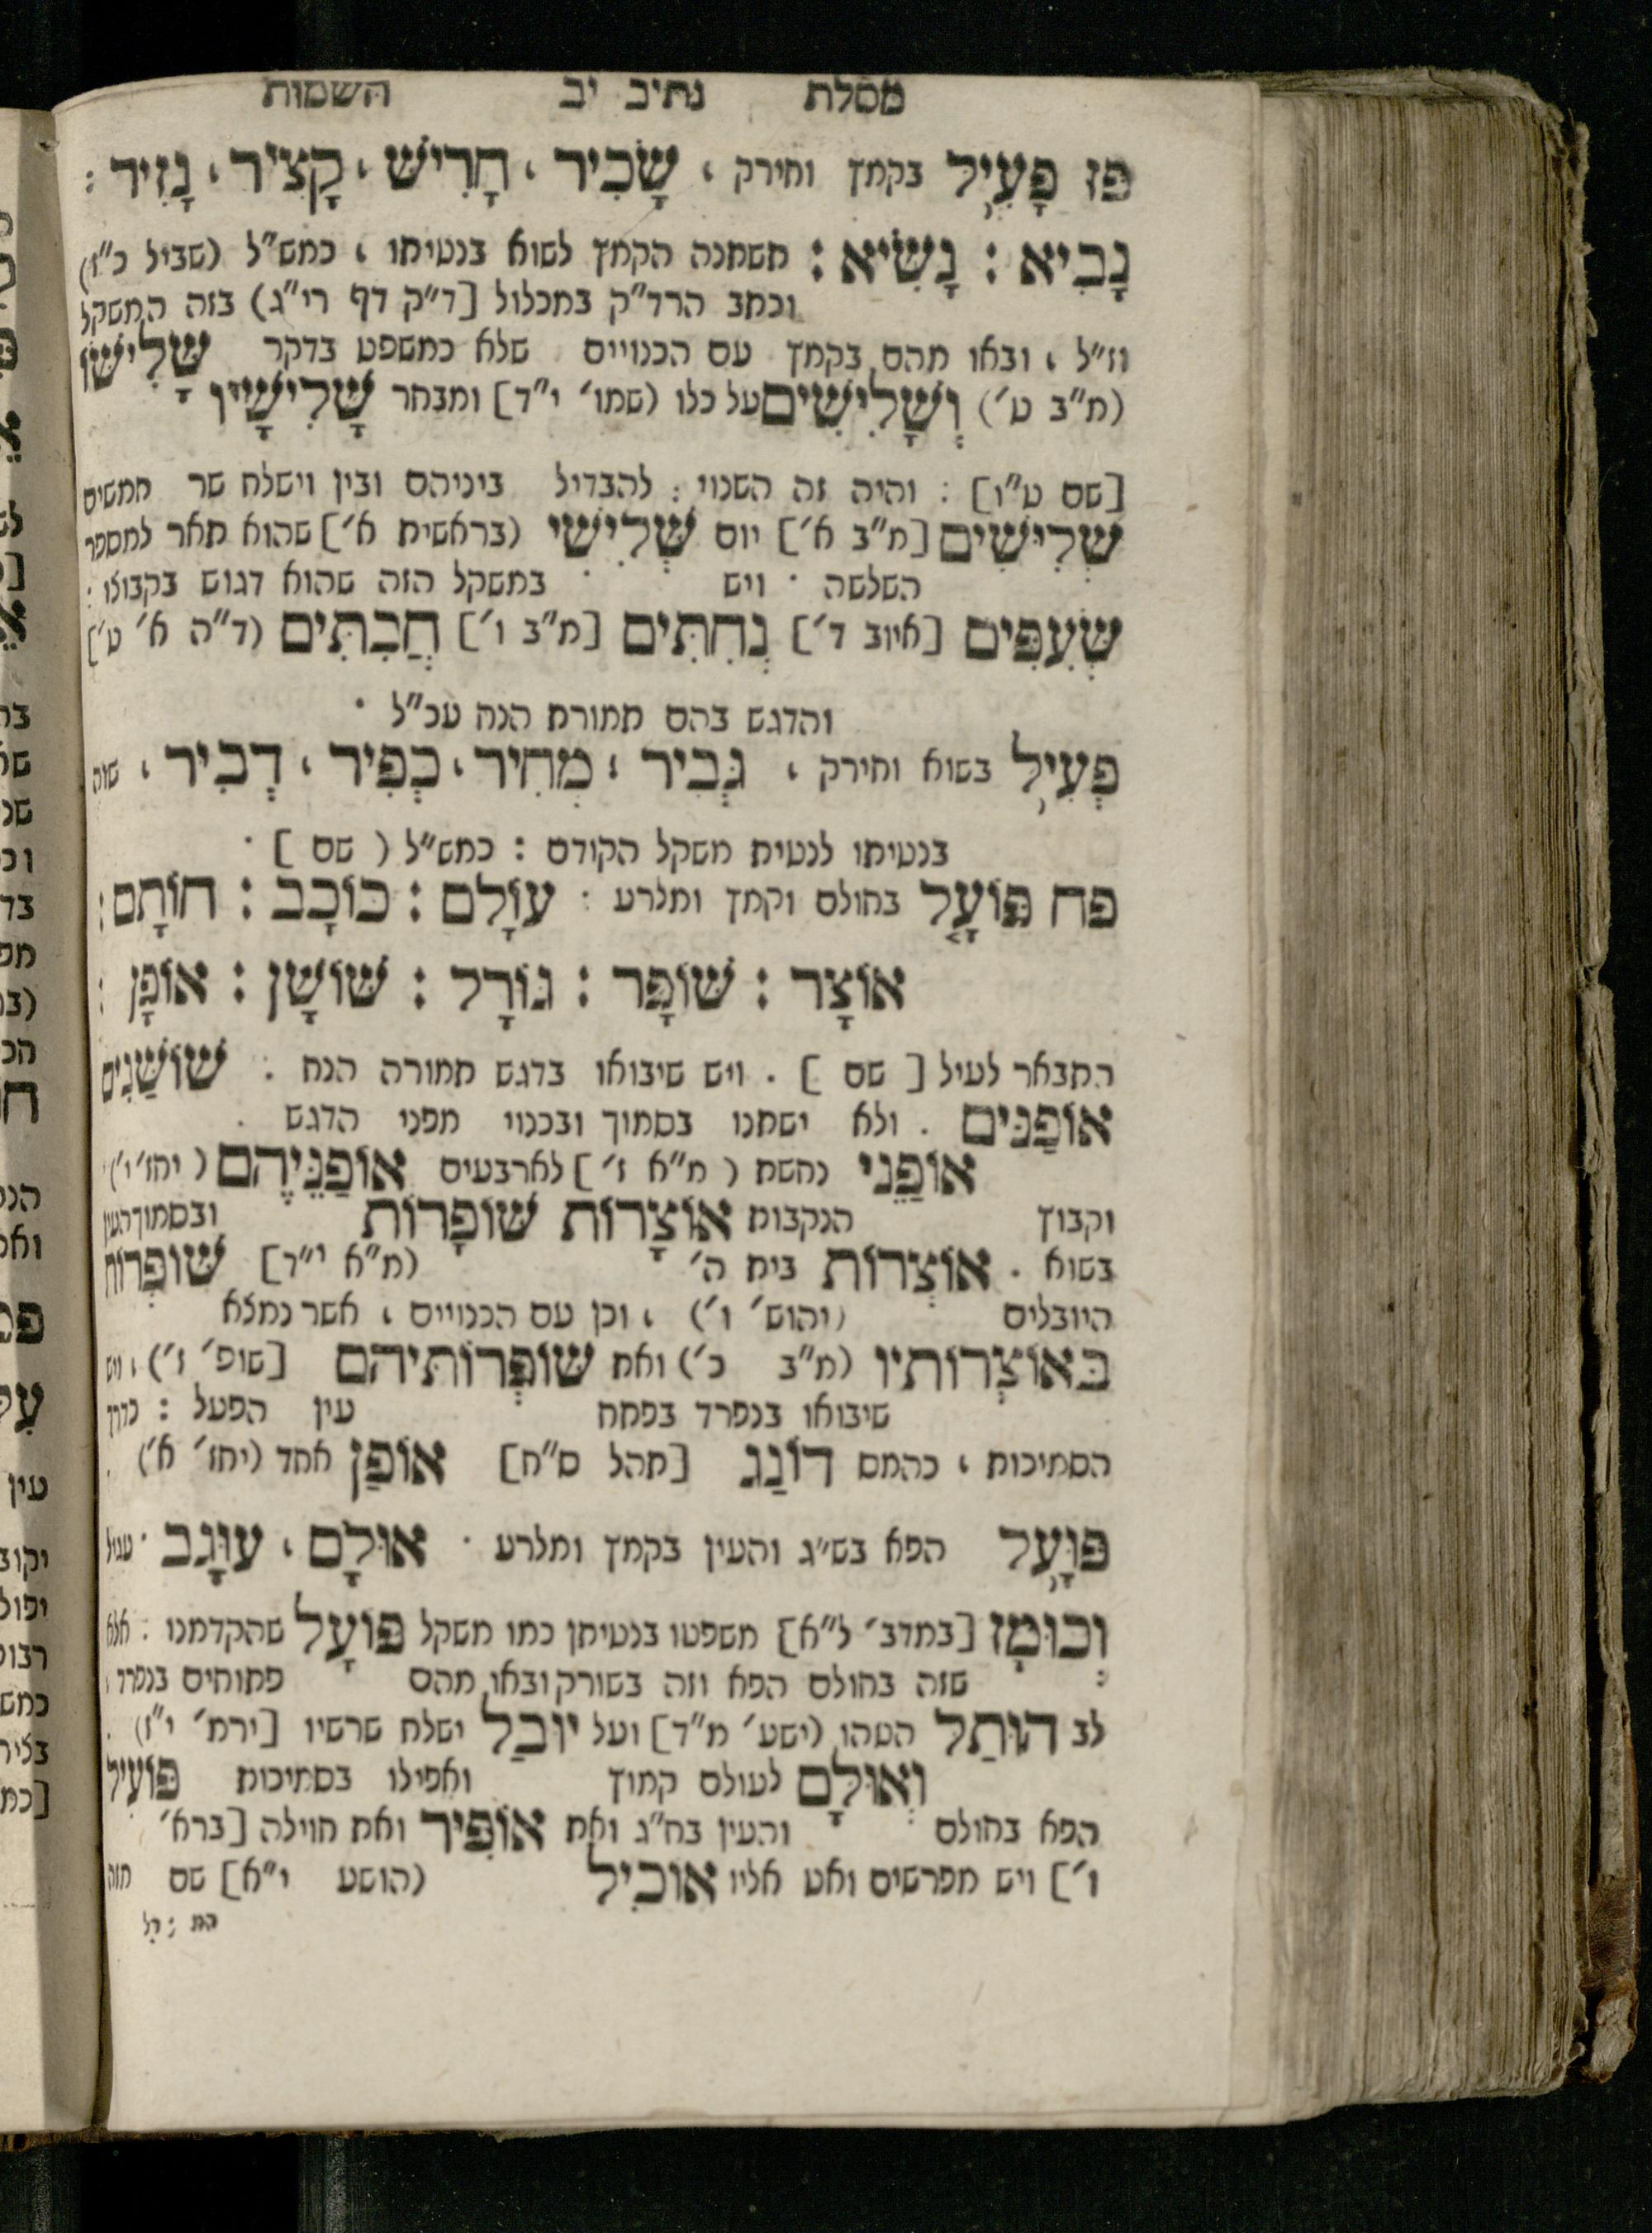 מסלת נתיב יב השמות
פז פָּעִיל בקמץ וחירק , שָׂכִיר , חָרִישׁ , קָצִיר , נָזִיר :
נָבִיא : נָשִׂיא : תשתנה הקמץ לשוא בנטיתו , כמש״ל (שביל כ״ז)
וכתב הרד״ק במכלול [ד״ק דף רי״ג) בזה המשקל
וז״ל , ובאו מהם בקמץ עם הכנויים שלא כמשפט בדקר שָּׁלִישׁוֹ
(מ״ב ט׳) וְשָׁלִישִׁים על כלו (שמו׳ י״ד] ומבחר שָׁלִישָׁיו
[שם ט״ו] : והיה זה השנוי : להבדיל ביניהם ובין וישלח שר חמשים
שְׁלִישִׁים [מ״ב א׳] יום שְׁלִישִׁי (בראשית א׳] שהוא תאר למספר
השלשה · ויש במשקל הזה שהוא דגוש בקבוצו :
שְׂעִפִּים [איוב ד׳] נְחִתִּים [מ״ב ו׳] חֲבִתִּים (ד״ה א׳ ט׳]
והדגש בהם תמורת הנח עכ״ל ·
פְּעִיל בשוא וחירק , גְּבִיר , מְחִיר , כְפִיר , דְבִיר , שוה
בנטיתו לנטית משקל הקודם : כמש״ל ( שם ] ·
פח פּוֹעָל בחולם וקמץ ומלרע : עוֹלָם : כּוֹכָב : חוֹתָם :
אוֹצָר : שׁוֹפָר : גּוֹרָל : שׁוֹשָׁן : אוֹפָן :
התבאר לעיל [ שם ] . ויש שיבואו בדגש תמורה הנח : שׁוֹשַׁנִּים
אוֹפַנִּים . ולא ישתנו בסמוך ובכנוי מפני הדגש .
אוֹפַנֵּי נחשת ( מ״א ז׳ ] לארבעים אוֹפַנֵּיהֶם ( יחז׳ י׳)
וקבוץ הנקבות אוֹצָרוֹת שׁוֹפָרוֹת ובסמוך העין
בשוא . אוֹצְרוֹת בית ה׳ (מ״א י״ד] שׁוֹפְרוֹת
היובלים (יהוש׳ ו׳) , וכן עם הכנויים , אשר נמצא
בְּאוֹצְרוֹתָיו (מ״ב כ׳) ואת שׁוֹפְרוֹתֵיהם [שופ׳ ז׳) , ויש
שיבואו בנפרד בפתח עין הפעל : כדרך
הסמיכות , כהמס דוֹנַג [תהל ס״ח] אוֹפַן אחד (יחז׳ א׳)
פּוּעָל הפא בש״ג והעין בקמץ ומלרע · אוּלָם , עוּגָב ·
וְכוּמָז [במדב׳ ל״א] משפטו בנטיתן כמו משקל פּוֹעָל שהקדמנו : אלא
שזה בחולם הפא וזה בשורק ובאו מהם פתוחים בנפרד
לב הוּתַל הטהו (ישע׳ מ״ד] ועל יוּבַל ישלח שרשיו [ירמ׳ י״ז)
וְאוּלָם לעולם קמוץ ואפילו בסמיכות פּוֹעִיל
הפא בחולם והעין בח״ג ואת אוֹפִיר ואת חוילה [ברא׳
ו׳] ויש מפרשים ואט אליו אוֹכִיל (הושע י״א] שם תוה